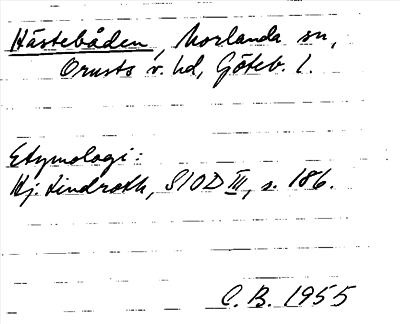 Hästebåden, Morlanda sn,
Orusts v. hd, Göteb. l.
Etymologi:
Hj. Lindroth, SIOD III, s. 186.
C. B. 1955